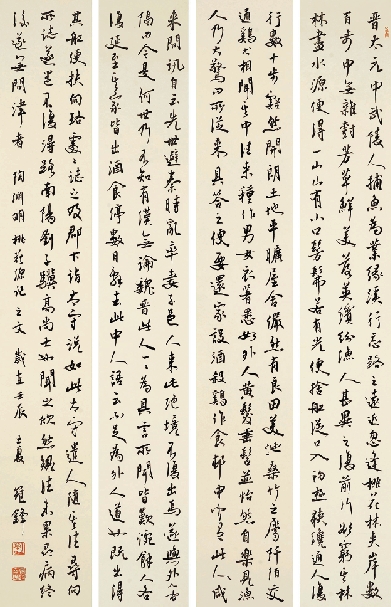 晉太元中武陵人捕魚為業緣溪行忘路之遠近忽逢桃花林夾岸數
百步中無雜樹芳草鮮美落英繽紛漁人甚異之復前行欲窮其林
林盡水源便得一山山有小口髣髴若有光便捨船從口入初極狹纔通人復
行數十步豁然開朗土地平曠屋舍儼然有良田美池桑竹之屬阡陌交
通雞犬相聞其中往來種作男女衣著悉如外人黃髮垂髫並怡然自樂見漁
人乃大驚問所從來具答之便要還家設酒殺雞作食村中聞有此人咸
來問訊自云先世避秦時亂率妻子邑人來此絕境不復出焉遂與外人
隔問今是何世乃不知有漢無論魏晉此人一一為具言所聞皆歎惋餘人各
復延至其家皆出酒食停數日辭去此中人語云不足為外人道也既出得
其船便扶向路處處誌之及郡下詣太守說如此太守遣人隨其往尋向
所誌遂迷不復得路南陽劉子驥高尚士也聞之欣然規往未果尋病終
後遂無問津者 陶淵明桃花源記之文 歲在壬辰